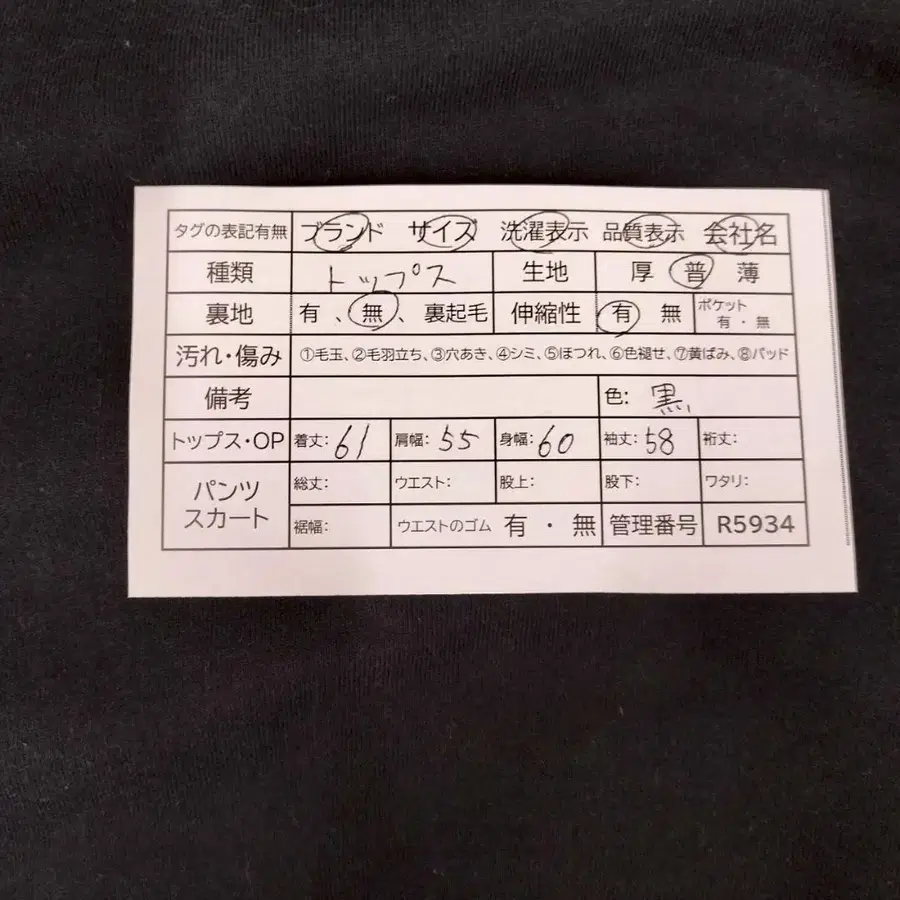 タグの表記有無 ブランド サイズ 洗濯表示 品質表示 会社名
種類 トップス 生地 厚 普 薄
裏地 有、無、裏起毛 伸縮性 有 無 ポケット 有・無
汚れ・傷み ①毛玉、②毛羽立ち、③穴あき、④シミ、⑤ほつれ、⑥色褪せ、⑦黄ばみ、⑧パッド
備考 色: 黒
トップス・OP 着丈: 61 肩幅: 55 身幅: 60 袖丈: 58 裄丈:
パンツ スカート 総丈: ウエスト: 股上: 股下: ワタリ:
裾幅: ウエストのゴム 有・無 管理番号 R5934